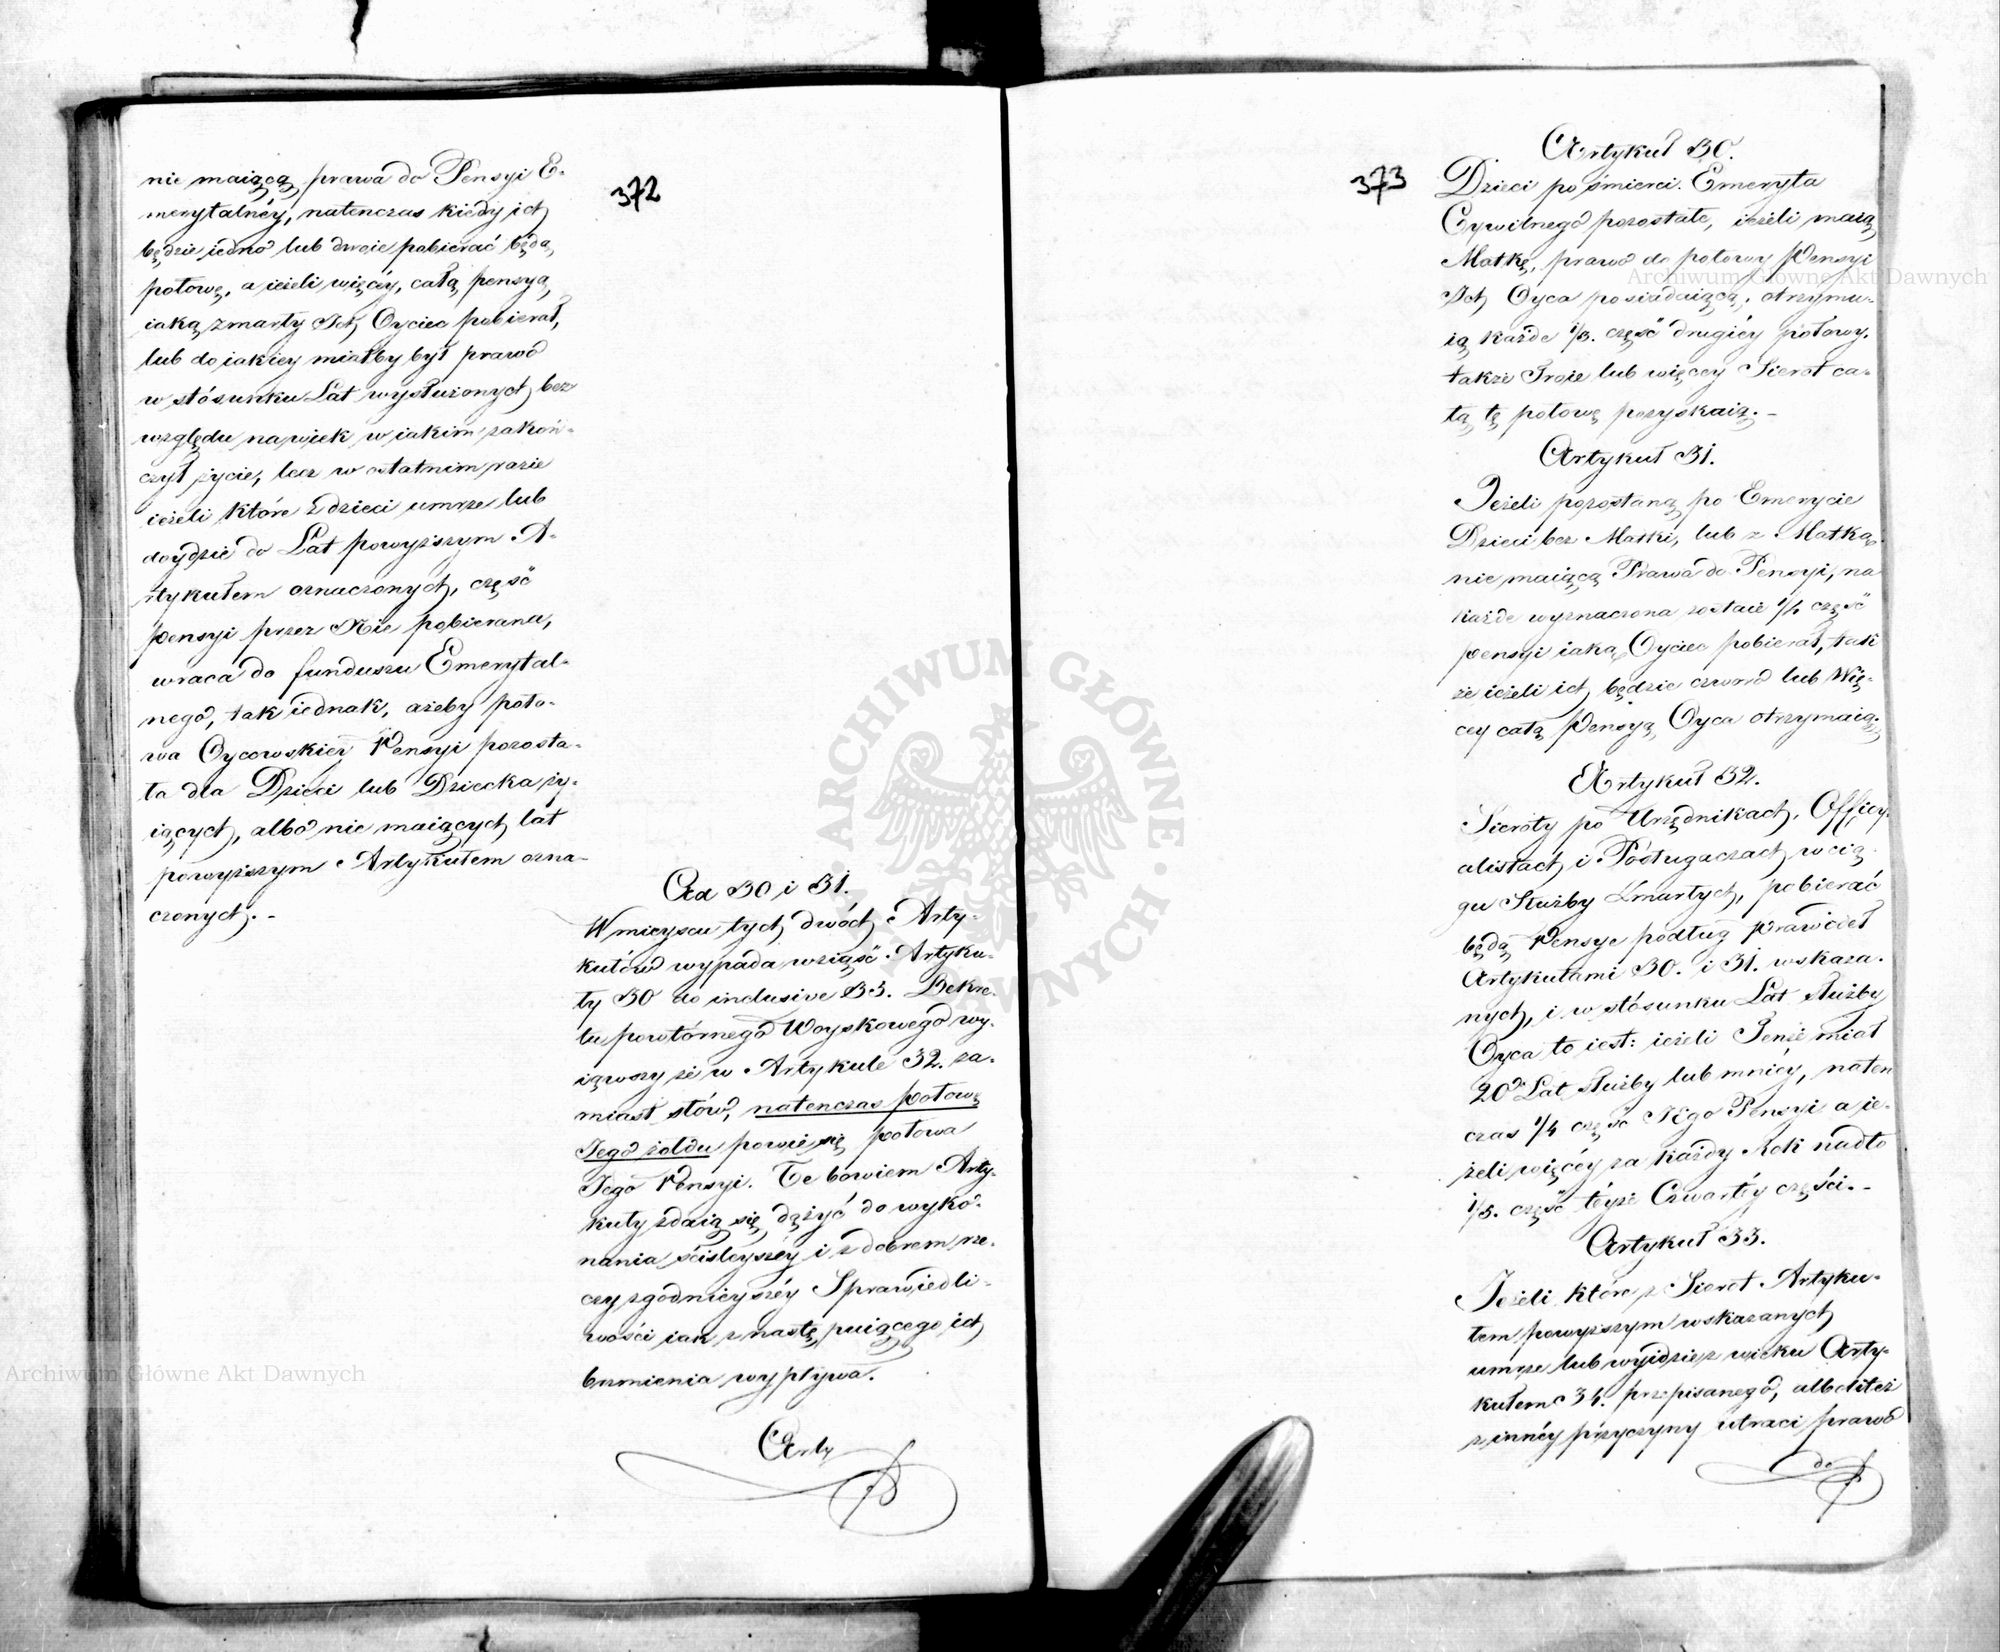 372
nie maiącą prawa do Pensyi E-
merytalnéy, natenczas kiedy ich
będzie iedno lub dwoie pobierać będą,
połowę, a ieżeli więcéy, całą pensyą,
iaką zmarły Ich Oyciec pobierał,
lub do iakiey miałby był prawo
w stósunku Lat wysłużonych bez
względu na wiek w iakim zakoń-
czył życie, lecz w ostatnim razie
ieżeli które z dzieci umrze lub
doydzie do Lat powyższym A-
rtykułem oznaczonych, część
pensyi przez Nie pobierana,
wraca do funduszu Emerytal-
nego, tak iednak, ażeby poło-
wa Oycowskiey Pensyi pozosta-
ła dla Dzieci lub Dziecka ży-
iących, albo nie maiących lat
powyższym Artykułem ozna-
czonych. -
Ad 30 i 31.
W mieyscu tych dwóch Arty-
kułów wypada wziąść Artyku-
ły 30 do inclusive 33. Dekre-
tu powtórnego Woyskowego wy-
iąwszy że w Artykule 32. za-
miast słów, natenczas połowę
Jego żołdu powie się połowa
Jego Pensyi. Te bowiem Arty-
kuły zdaią się dążyć do wyko-
nania ścisleyszéy i z dobrem rze-
czy zgodnieyszéy Sprawiedli-
wości iak z następuiącego ich
brzmienia wypływa.
Arty
373
Artykuł 30.
Dzieci po śmierci Emeryta
Cywilnego pozostałe, ieżeli maią
Matkę, prawo do połowy Pensyi
Ich Oyca posiadaiącą, otrzymu-
ią każde 1/3. część drugiéy połowy.
także Troie lub więcey Sierot ca-
łą tę połowę pozyskaią. -
Artykuł 31.
Jeżeli pozostaną po Emerycie
Dzieci bez Matki, lub z Matką
nie maiącą Prawa do Pensyi, na
każde wyznaczona zostaie 1/4 część
pensyi iaką Oyciec pobierał, tak
że ieżeli ich będzie czworo lub Wię-
cey całą Pensyą Oyca otrzymaią.
Artykuł 32.
Sieroty po Urzędnikach, Officy-
alistach i Posługaczach w cią-
gu Służby Zmarłych, pobierać
będą Pensye podług prawideł
Artykułami 30. i 31. wskaza-
nych, i w stósunku Lat służby
Oyca to iest: ieżeli Tenże miał
20 Lat służby lub mniéy, naten
czas 1/4 część Jego Pensyi a ie-
żeli więcéy za każdy Rok nadto
1/5. część téyże Czwartéy części. -
Artykuł 33.
Jeżeli które z Sierot Artyku-
łem powyższym wskazanych
umrze lub wyidzie z wieku Arty-
kułem 34. przepisanego, albo też
z innéy przyczyny utraci prawo
do
Archiwum Główne Akt Dawnych
Archiwum Główne Akt Dawnych
ARCHIWUM GŁÓWNE AKT DAWNYCH